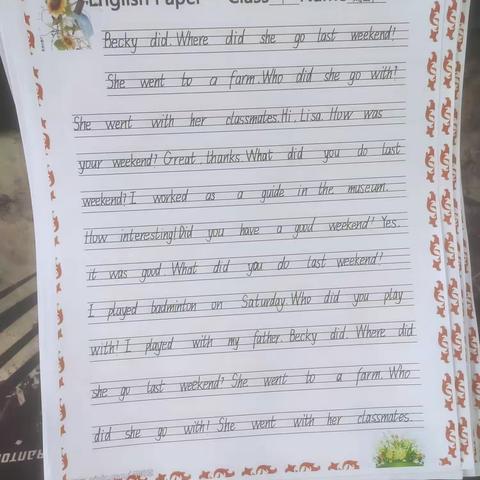 English Paper Class Name
Becky did. Where did she go last weekend?
She went to a farm. Who did she go with?
She went with her classmates. Hi, Lisa. How was
your weekend? Great, thanks. What did you do last
weekend? I worked as a guide in the museum.
How interesting! Did you have a good weekend? Yes,
it was good. What did you do last weekend?
I played badminton on Saturday. Who did you play
with? I played with my father. Becky did. Where did
she go last weekend? She went to a farm. Who
did she go with? She went with her classmates.